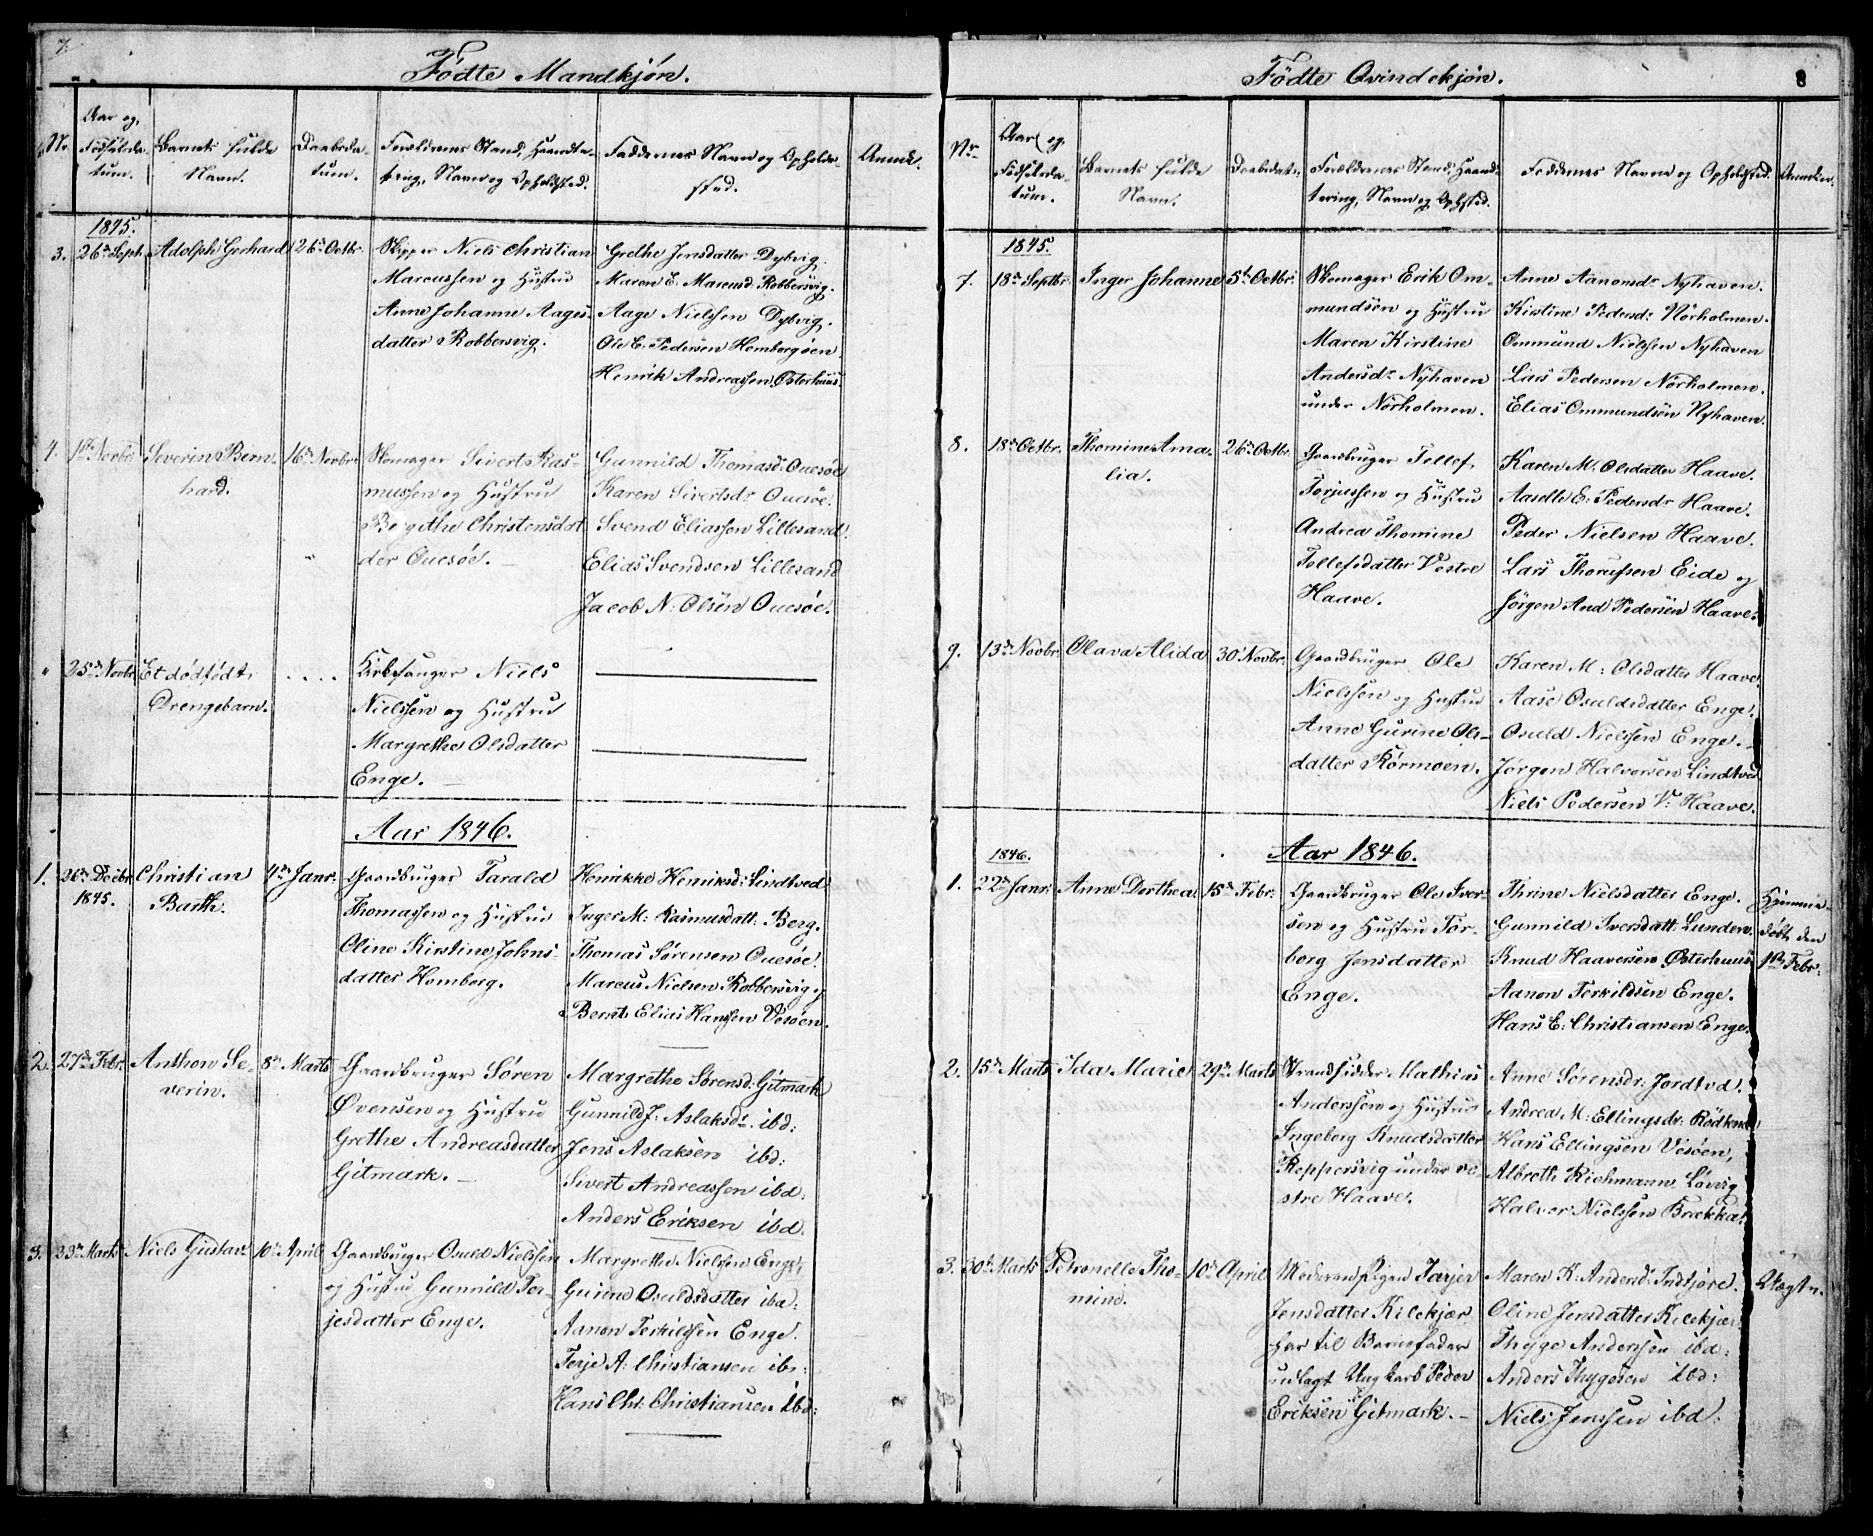 7.
Fødte Mandkjøn.
Nr.
Aar og
Fødselsda-
tum.
Barnets fulde
Navn.
Daabsda-
tum.
Forældrenes Stand, Haandte-
ring, Navn og Opholdsted.
Faddernes Navn og Opholds-
sted.
Anmk.
1845.
3.
26de Septr.
Adolph Gerhard
26de Octbr.
Skipper Niels Christian
Marcussen og Hustru
Anne Johanne Aages-
datter Robbersvig.
Grethe Jensdatter Dybvig.
Maren E. Marcusd. Robbersvig.
Aage Nielssen Dybvig.
Ole E. Pedersen Homborgøen.
Henrik Andreassen Østerhuus.
4.
1ste Novbr.
Severin Bern-
hard.
16de Novbr.
Skomager Sivert Ras-
mussen og Hustru
Birgithe Christensdat-
der Ouesøe.
Gunnild Thomasdr. Ouesøe
Karen Sivertsdr. Ouesøe.
Svend Eliassen Lillesand.
Elias Svendsen Lillesand
Jacob N. Olsen Ouesøe.
"
25de Novbr.
Et dødfødt
Drengebarn.
. . . .
Kirkesanger Niels
Nielssen og Hustru
Margrethe Olsdatter
Enge.
Aar 1846.
1.
26de Decbr.
1845.
Christian
Barth.
4de Janr.
Gaardbruger Tarald
Thomassen og Hustru
Oline Kirstine Johns-
datter Homborg.
Henrikke Henriksd: Lindtved
Inger M: Rasmusdatt: Berg.
Thomas Sørensen Ouesøe.
Marcus Nielsen Robbersvig og
Bernt Elias Hanssen Vesøen.
2.
27de Febr.
Anthon Se-
verin.
8de Marts
Gaardbruger Søren
Øvensen og Hustru
Grethe Andreasdatter
Gitmark.
Margrethe Sørensd: Gitmark
Gunnild J: Aslaksdr. ibd:
Jens Aslaksen ibd:
Sivert Andreassen ibd:
Anders Eriksen ibd.
3.
23de Marts
Niels Gustav.
10de April
Gaardbruger Osuld Nielssen
og Hustru Gunnild Ter-
jesdatter Enge.
Margrethe Nielssen Enge,
Gurine Osuldsdatter ibd:
Aanon Terkildssen Enge.
Terje A: Christiansen ib:
Hans Chr: Christiansen ibd:
8
Fødte Qvindekjøn.
Nr.
Aar og
Fødselsda-
tum.
Barnets fulde
Navn.
Daabsdatr.
Forældrenes Stand, Haand-
tering, Navn og Ophsted.
Faddernes Navne og Opholdsted.
Anmkn.
1845.
7.
18de Septbr.
Inger Johanne
5te Octbr.
Skomager Erik Om-
mundsen og Hustru
Maren Kirstine
Andersdr. Nyhaven
under Nørholmen.
Anne Aanonsdr. Nyhaven.
Kirstine Pedersdr. Nørholmen.
Ommund Nielssen Nyhaven
Lars Pedersen Nørholmen.
Elias Ommundsen Nyhaven.
8.
18de Octbr.
Thomine Ama-
lia.
26de Octbr.
Gaardbruger Tellef
Torjussen og Hustru
Andrea Thomine
Tellefsdatter Vestre
Haave.
Karen M. Olsdatter Haave.
Aaselle E: Pedersdr. Haave.
Peder Nielsen Haave.
Lars Thorufsen Eide og
Jørgen And Pedersen Haave.
9.
13de Novbr.
Olava Alida
30 Novbr.
Gaardbruger Ole
Nielssen og Hustru
Anne Gurine Ols-
datter Kørmoen.
Karen M: Olsdatter Haave.
Aase Osuldsdatter Enge.
Osuld Nielssen Enge.
Jørgen Halvorsen Lindtved
Niels Pedersen V: Haave.
1846.
Aar 1846.
1.
22de Janr:
Anne Dorthea.
15de Febr:
Gaardbruger Ole Iver-
sen og Hustru Tor-
borg Jensdatter
Enge.
Thrine Nielsdatter Enge.
Gunnild Iversdatt: Lunden.
Knud Haaversen Østerhuus
Aanon Terkildsen Enge.
Hans E: Christiansen Enge.
Hjemme-
døbt den
1ste Febr:
2.
15de Marts
Ida Marie
29de Marts
Strandsidder Mathias
Anderssen og Hustru
Ingeborg Knudsdatter
Reppersvig under ve-
stre Haave.
Anne Sørensdr: Jordtvd.
Andrea M: Ellingsdr:
Hans Ellingsen Vesøen,
Albreth Richmann Løvig
Halvor Nielssen Brækka.
3.
30te Marts
Petronelle Tho-
mine.
10de April
Moderen Pigen Tarjer
Jensdatter Kilekjær
har til Barnefader
udlagt Ungkarl Peder
Eriksen Gitmark.
Maren K: Andersd:
Oline Jensdatter Kilekjær.
Thyge Anderssen ibd:
Anders Thygesen ibd:
Niels Jenssen ibd:
Uægte.